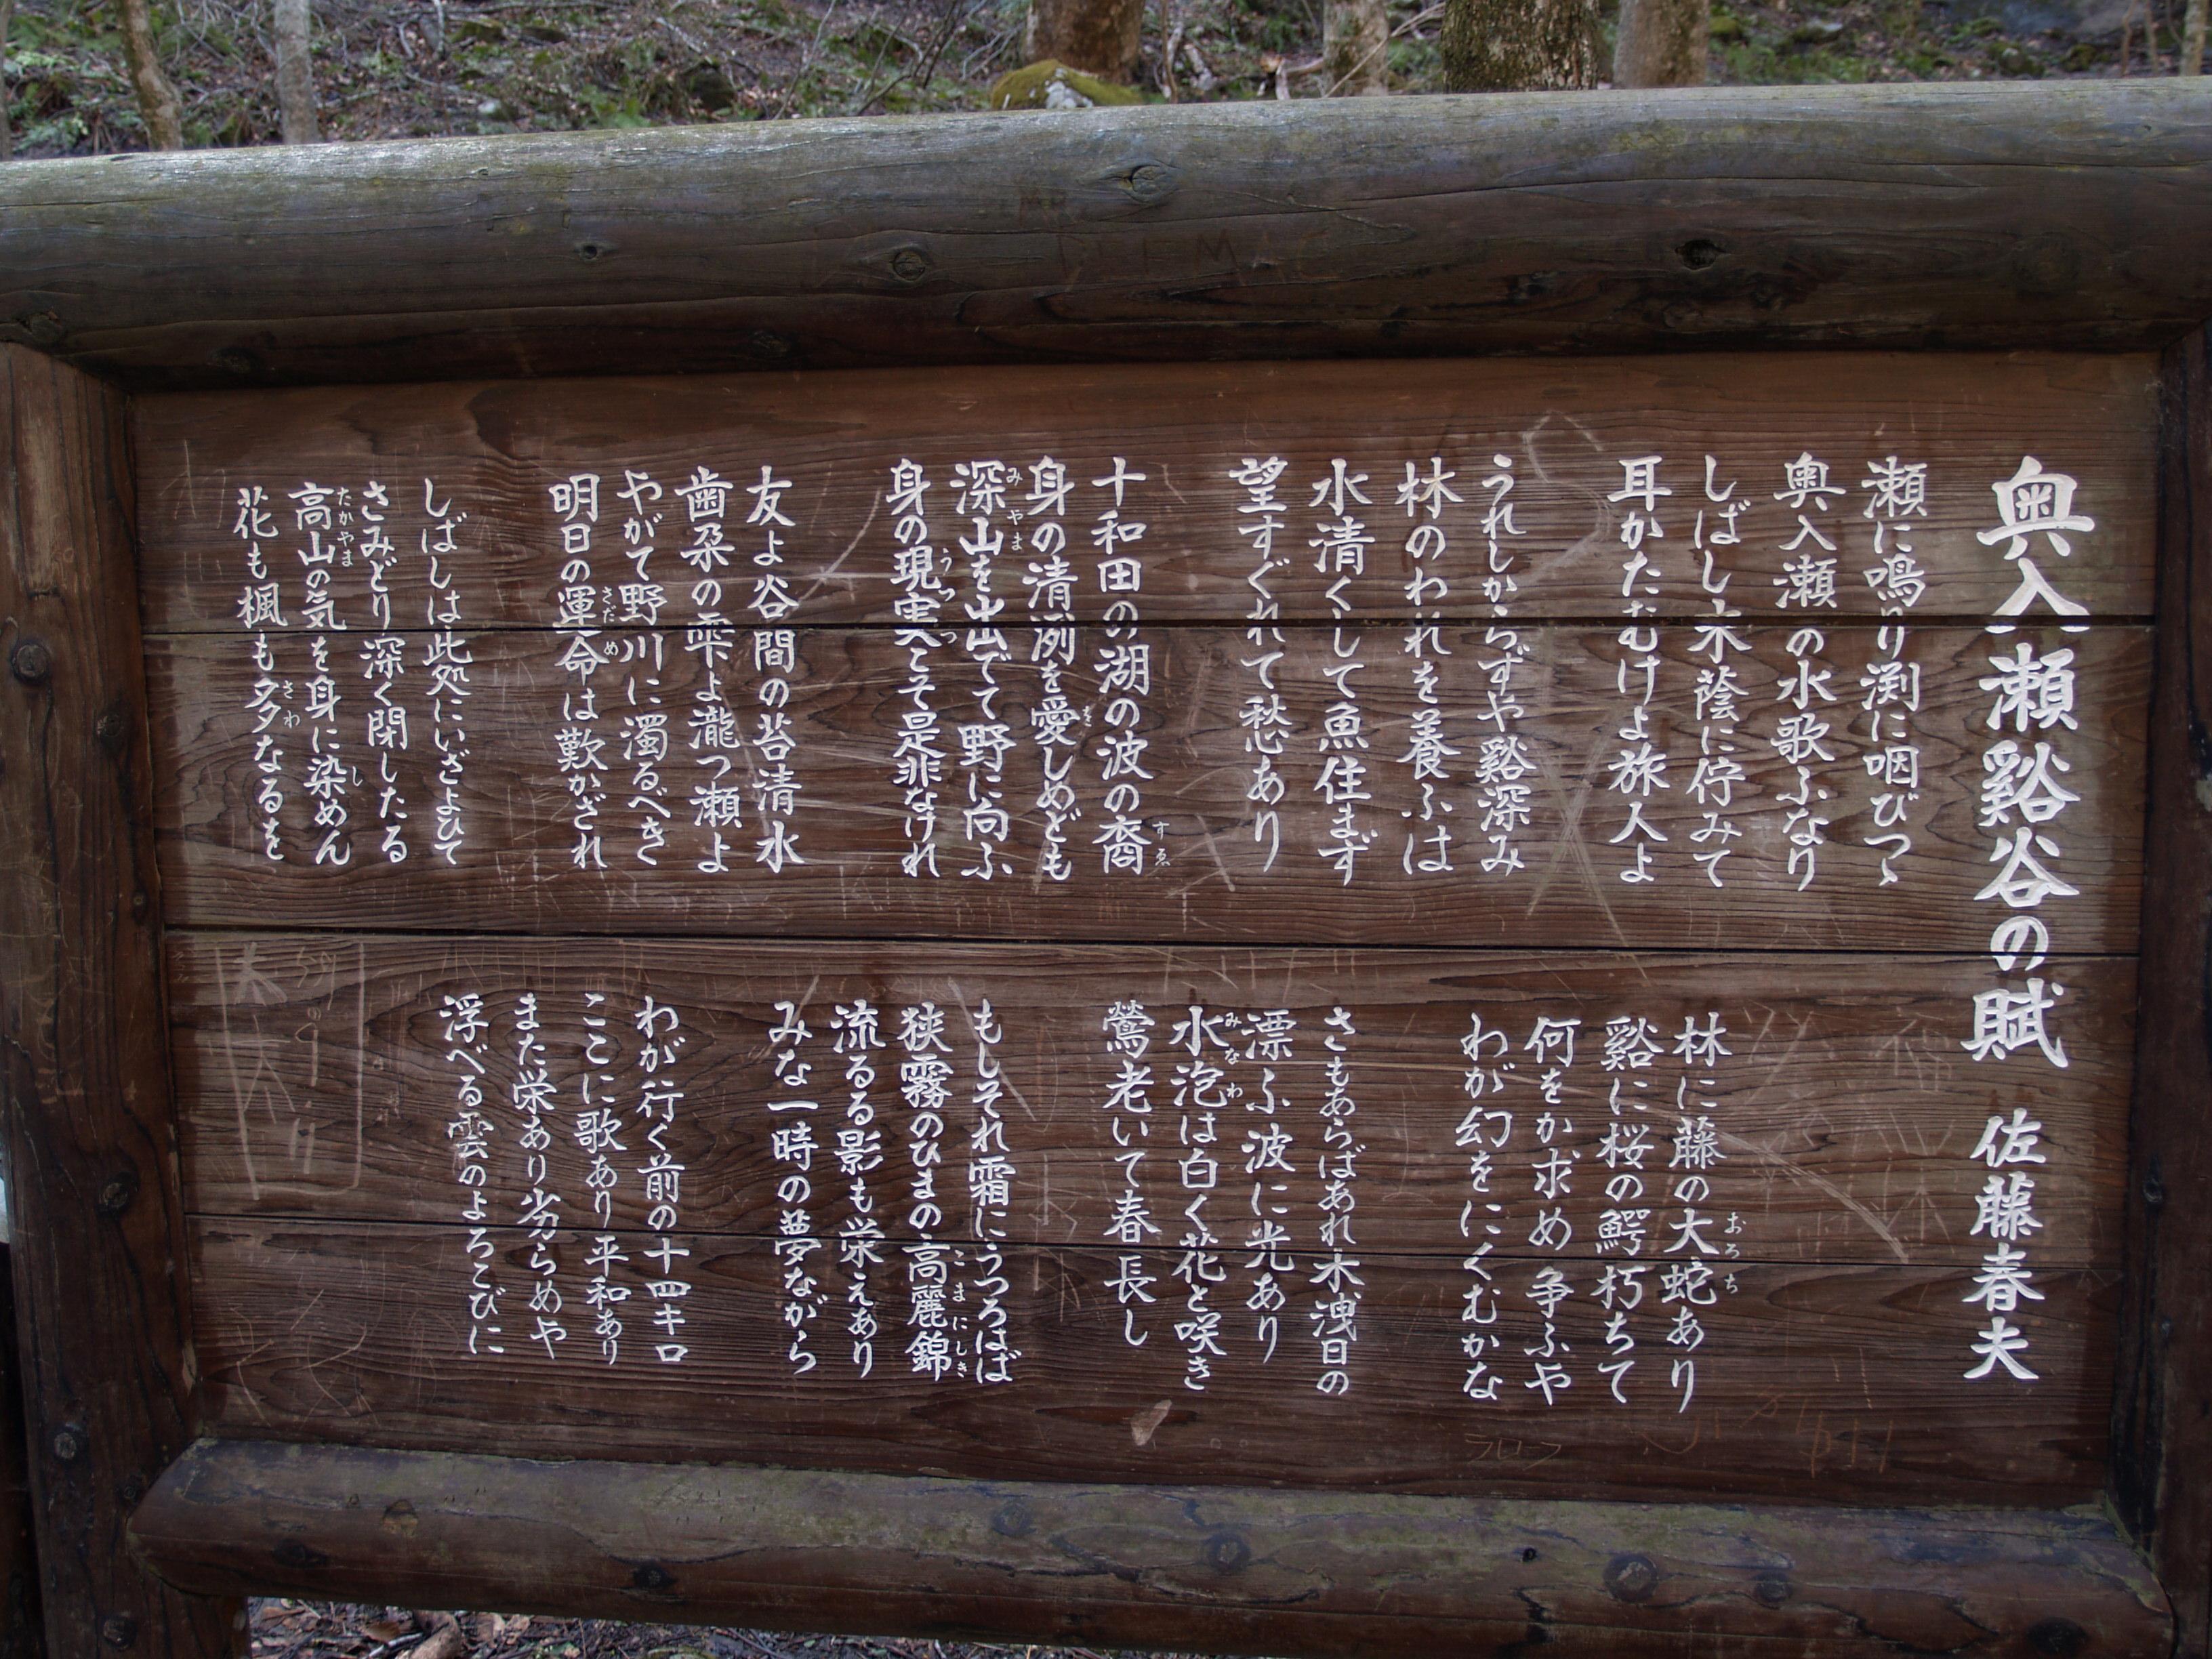 奥入瀬谿谷の賦 佐藤春夫
瀬に鳴り渕に咽びつゝ
奥入瀬の水歌ふなり
しばし木蔭に佇みて
耳かたむけよ旅人よ
うれしからずや谿深み
林のわれを養ふは
水清くして魚住まず
望すぐれて愁あり
十和田の湖の波の裔
すゑ
身の清冽を愛しめども
を
深山を出でて野に向ふ
みやま
身の現実こそ是非なけれ
うつつ
友よ谷間の苔清水
歯朶の雫よ瀧つ瀬よ
やがて野川に濁るべき
明日の運命は歎かざれ
さだめ
しばしは此処にいざよひて
さみどり深く閉したる
高山の気を身に染めん
たかやま
し
花も楓も多なるを
さわ
林に藤の大蛇あり
おろち
谿に桜の鰐朽ちて
何をか求め争ふや
わが幻をにくむかな
さもあらばあれ木洩日の
漂ふ波に光あり
水泡は白く花と咲き
みなわ
鶯老いて春長し
もしそれ霜にうつろはば
狭霧のひまの高麗錦
こまにしき
流るる影も栄えあり
みな一時の夢ながら
わが行く前の十四キロ
ここに歌あり平和あり
また栄あり劣らめや
浮べる雲のよろこびに